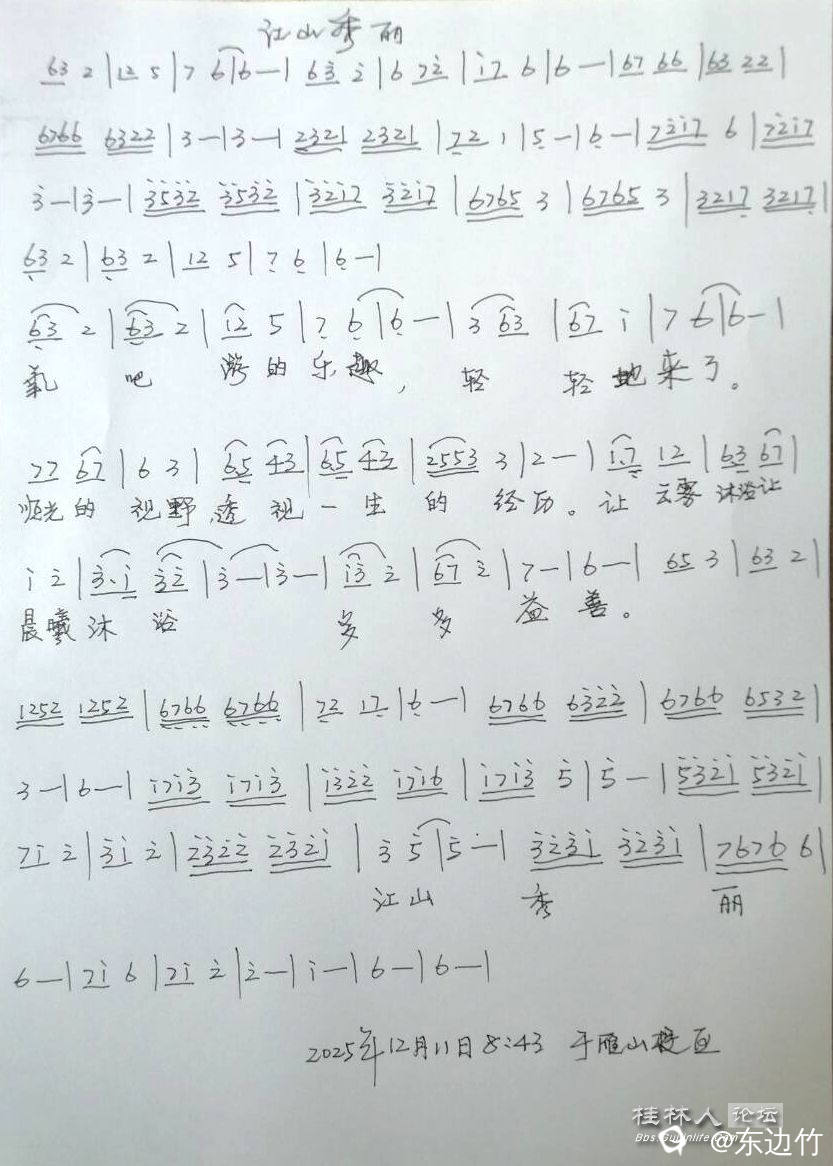 江山秀丽
63 2 | 12 5 | 7 6 | 6 — | 63 2 | 6 72 | 17 6 | 6 — | 67 66 | 63 22 |
6766 6322 | 3 — | 3 — | 2321 2321 | 72 1 | 5 — | 6 — | 7217 6 | 7217
3 — | 3 — | 3532 3532 | 3217 3217 | 6765 3 | 6765 3 | 3217 3217 |
63 2 | 63 2 | 12 5 | 7 6 | 6 — |
63 2 | 63 2 | 12 5 | 7 6 | 6 — | 3 63 | 67 i | 7 6 | 6 — |
氧 吧 游的乐趣, 轻 轻地来了。
77 67 | 6 3 | 65 43 | 65 43 | 2553 3 | 2 — | i.7 12 | 63 67 |
顺光的 视野,透视一生的 经历。让 云雾 沐浴让
i 2 | 3.i 32 | 3 — | 3 — | i3 2 | 67 2 | 7 — | 6 — | 65 3 | 63 2 |
晨曦沐 浴 多 多 益善。
1252 1252 | 6766 6766 | 72 17 | 6 — | 6766 6322 | 6766 6532 |
3 — | 6 — | i7i3 i7i3 | i322 i7i6 | i7i3 5 | 5 — | 532i 532i |
7i 2 | 3i 2 | 2322 232i | 3 5 | 5 — | 323i 323i | 7676 6 |
江山 秀 丽
6 — | 7i 6 | 7i 2 | 2 — | i — | 6 — | 6 — |
2025年12月11日 8:43 于雁山校区
桂林人论坛
Bbs.Guilinlife.Com
@东边竹